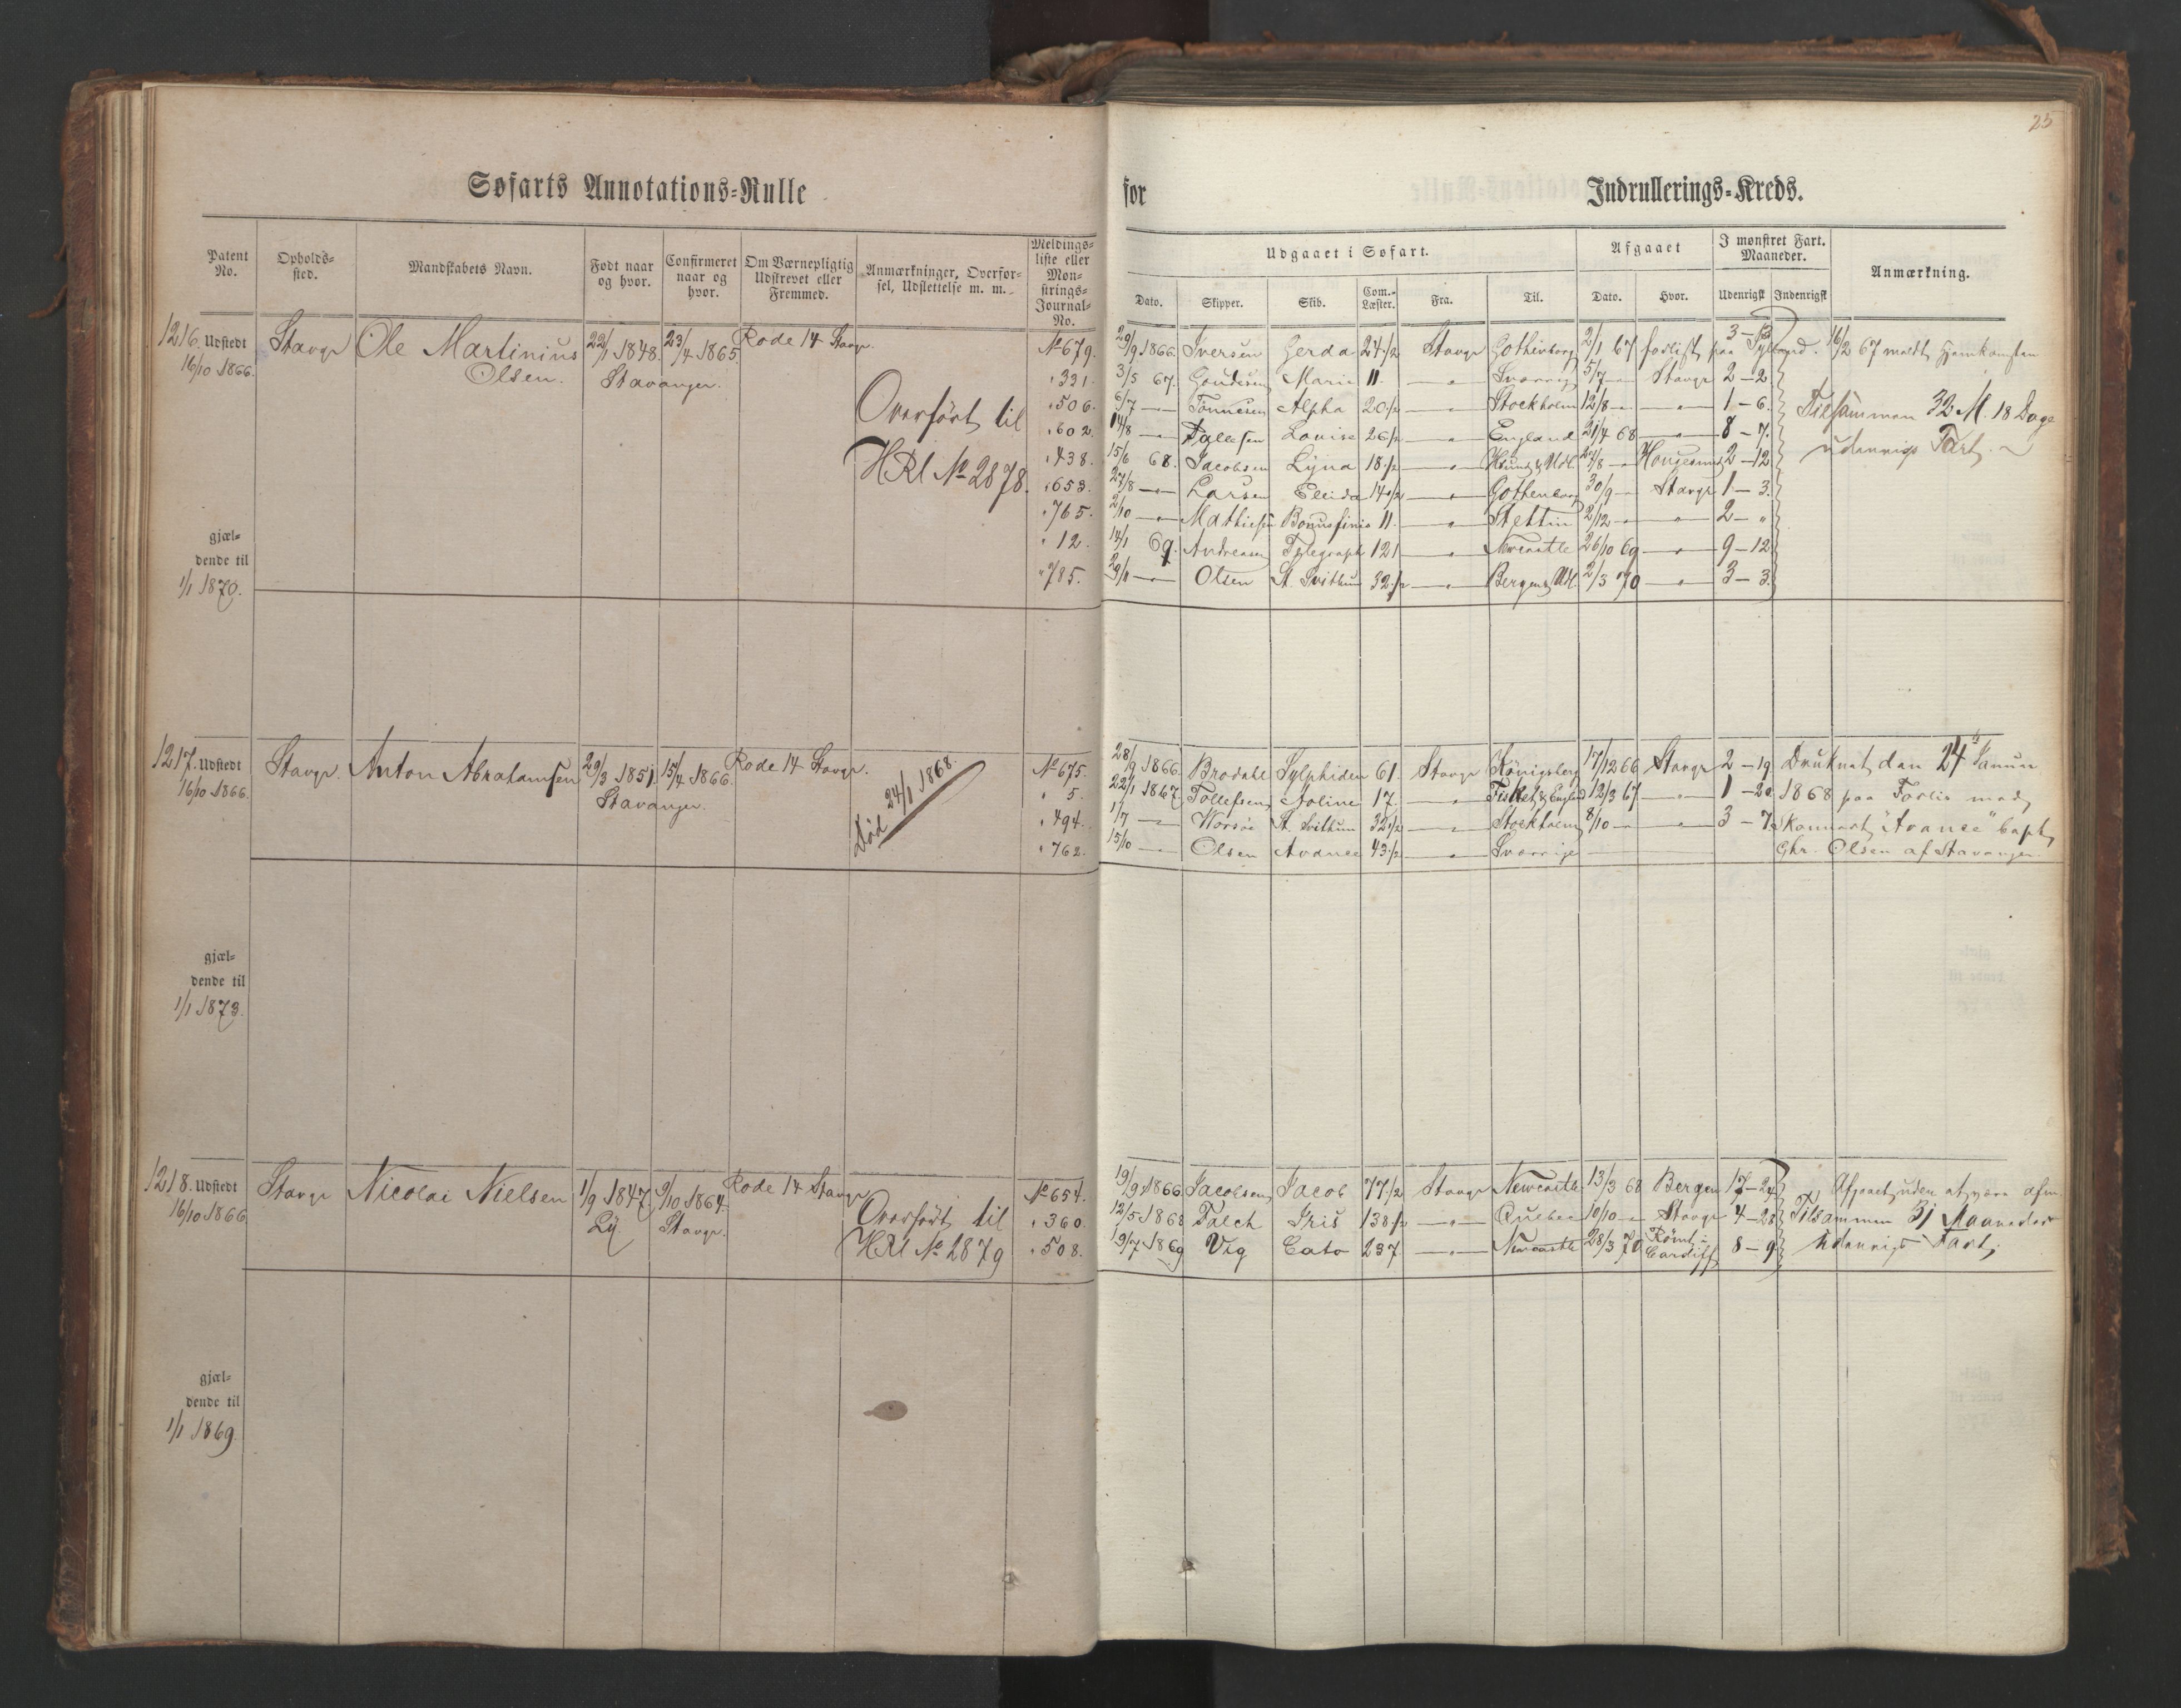 25
Søfarts Annotations-Rulle for Indrullerings-Kreds.
Patent No. Opholds-sted. Mandskabets Navn. Født naar og hvor. Confirmeret naar og hvor. Om Værnepligtig Udskrevet eller Fremmed. Anmærkninger, Overfør-sel, Udslettelse m. m. Meldings-liste eller Møn-strings-Journal-No.
Udgaaet i Søfart. Afgaaet I mønstret Fart. Maaneder. Anmærkning.
Dato. Skipper. Skib. Com.-Læster. Fra. Til. Dato. Hvor. Udenrigsk Indenrigsk
1216. Udstedt 16/10 1866. Stavgr Ole Martinius Olsen. 22/1 1848. Stavanger. 23/4 1865. Rode 14 Stavgr.
Overført til
HRl No 2878.
gjæl-
dende til
1/1 1870.
No 679. 29/9 1866. Iversen Gerda 24 1/2 Stavgr Gothenborg 2/1 67 forlist paa Jylland. 3 - 3 16/2 67 meldt Hjemkomsten
" 321. 3/5 67. Maria 11. — Sverrig 5/7 — Stavgr 2 - 2
" 506. 6/7 — Tønnesen Alpha 20 1/2 — Stockholm 12/8 — — 1 - 6. Tilsammen 32 M. 18 Dage
" 602. 14/8 — Louise 26 1/2 — England 21/4 68 — 8 - 7. udenrigs Fart.
" 438. 15/6 68. Jacobsen Lyna 18 1/2 — 2 - 12
" 653. 27/8 — Larsen Elida 14 1/2 — Gothenborg 30/9 — Stavgr 1 - 3.
" 765. 2/10 — Mathiesen 11. — Stettin 2/12 — — 2 - "
" 12. 14/1 69. Andreasen Telegraph 121 — Newcastle 26/10 69 — 9 - 12
" 785. 29/11 — Olsen St. Svithun 32 1/2 — Bergen & Udl. 2/3 70 — 3 - 3.
1217. Udstedt 16/10 1866. Stavgr. Anton Abrahamsen 29/3 1851. Stavanger. 15/4 1866. Rode 14 Stavgr.
Død 24/1 1868.
gjæl-
dende til
1/1 1873.
No 675. 28/9 1866. Brodahl Sylphiden 61. Stavgr Königsberg 17/12 66 Stavgr 2 - 19. Druknet den 24de Januar
" 5. 22/1 1867. Tollefsen Aoline 17. — Fisket & England 12/3 67 — 1 - 20. 1868 paa Forlis med
" 494. 1/7 — Worsöe St. Svithun 32 1/2 — Stockholm 8/10 — — 3 - 7. Skonnert "Avance" Capt
" 762. 15/10 — Olsen Avance 43 1/2 — Sverrige Chr. Olsen af Stavanger.
1218. Udstedt 16/10 1866 Stavgr Nicolai Nielsen 1/9 1847. Ly. 9/10 1864. Stavgr. Rode 14 Stavgr
Overført til
HRl No 2879
gjæl-
dende til
1/1 1869.
No 654. 19/9 1866 Jacobsen Jacob 77 1/2 Stavgr Newcastle 13/3 68 Bergen 17 - 24 Afgaaet uden at være afm.
" 360. 12/5 1868 Falch Iris 138 1/2 — Quebec 10/10 — Stavgr 4 - 28 Tilsammen 31 Maaneder
" 508. 19/7 1869 Vig Cato 237 — Newcastle 28/3 70 Rømt i Cardiff 8 - 9 udenrigs Fart.